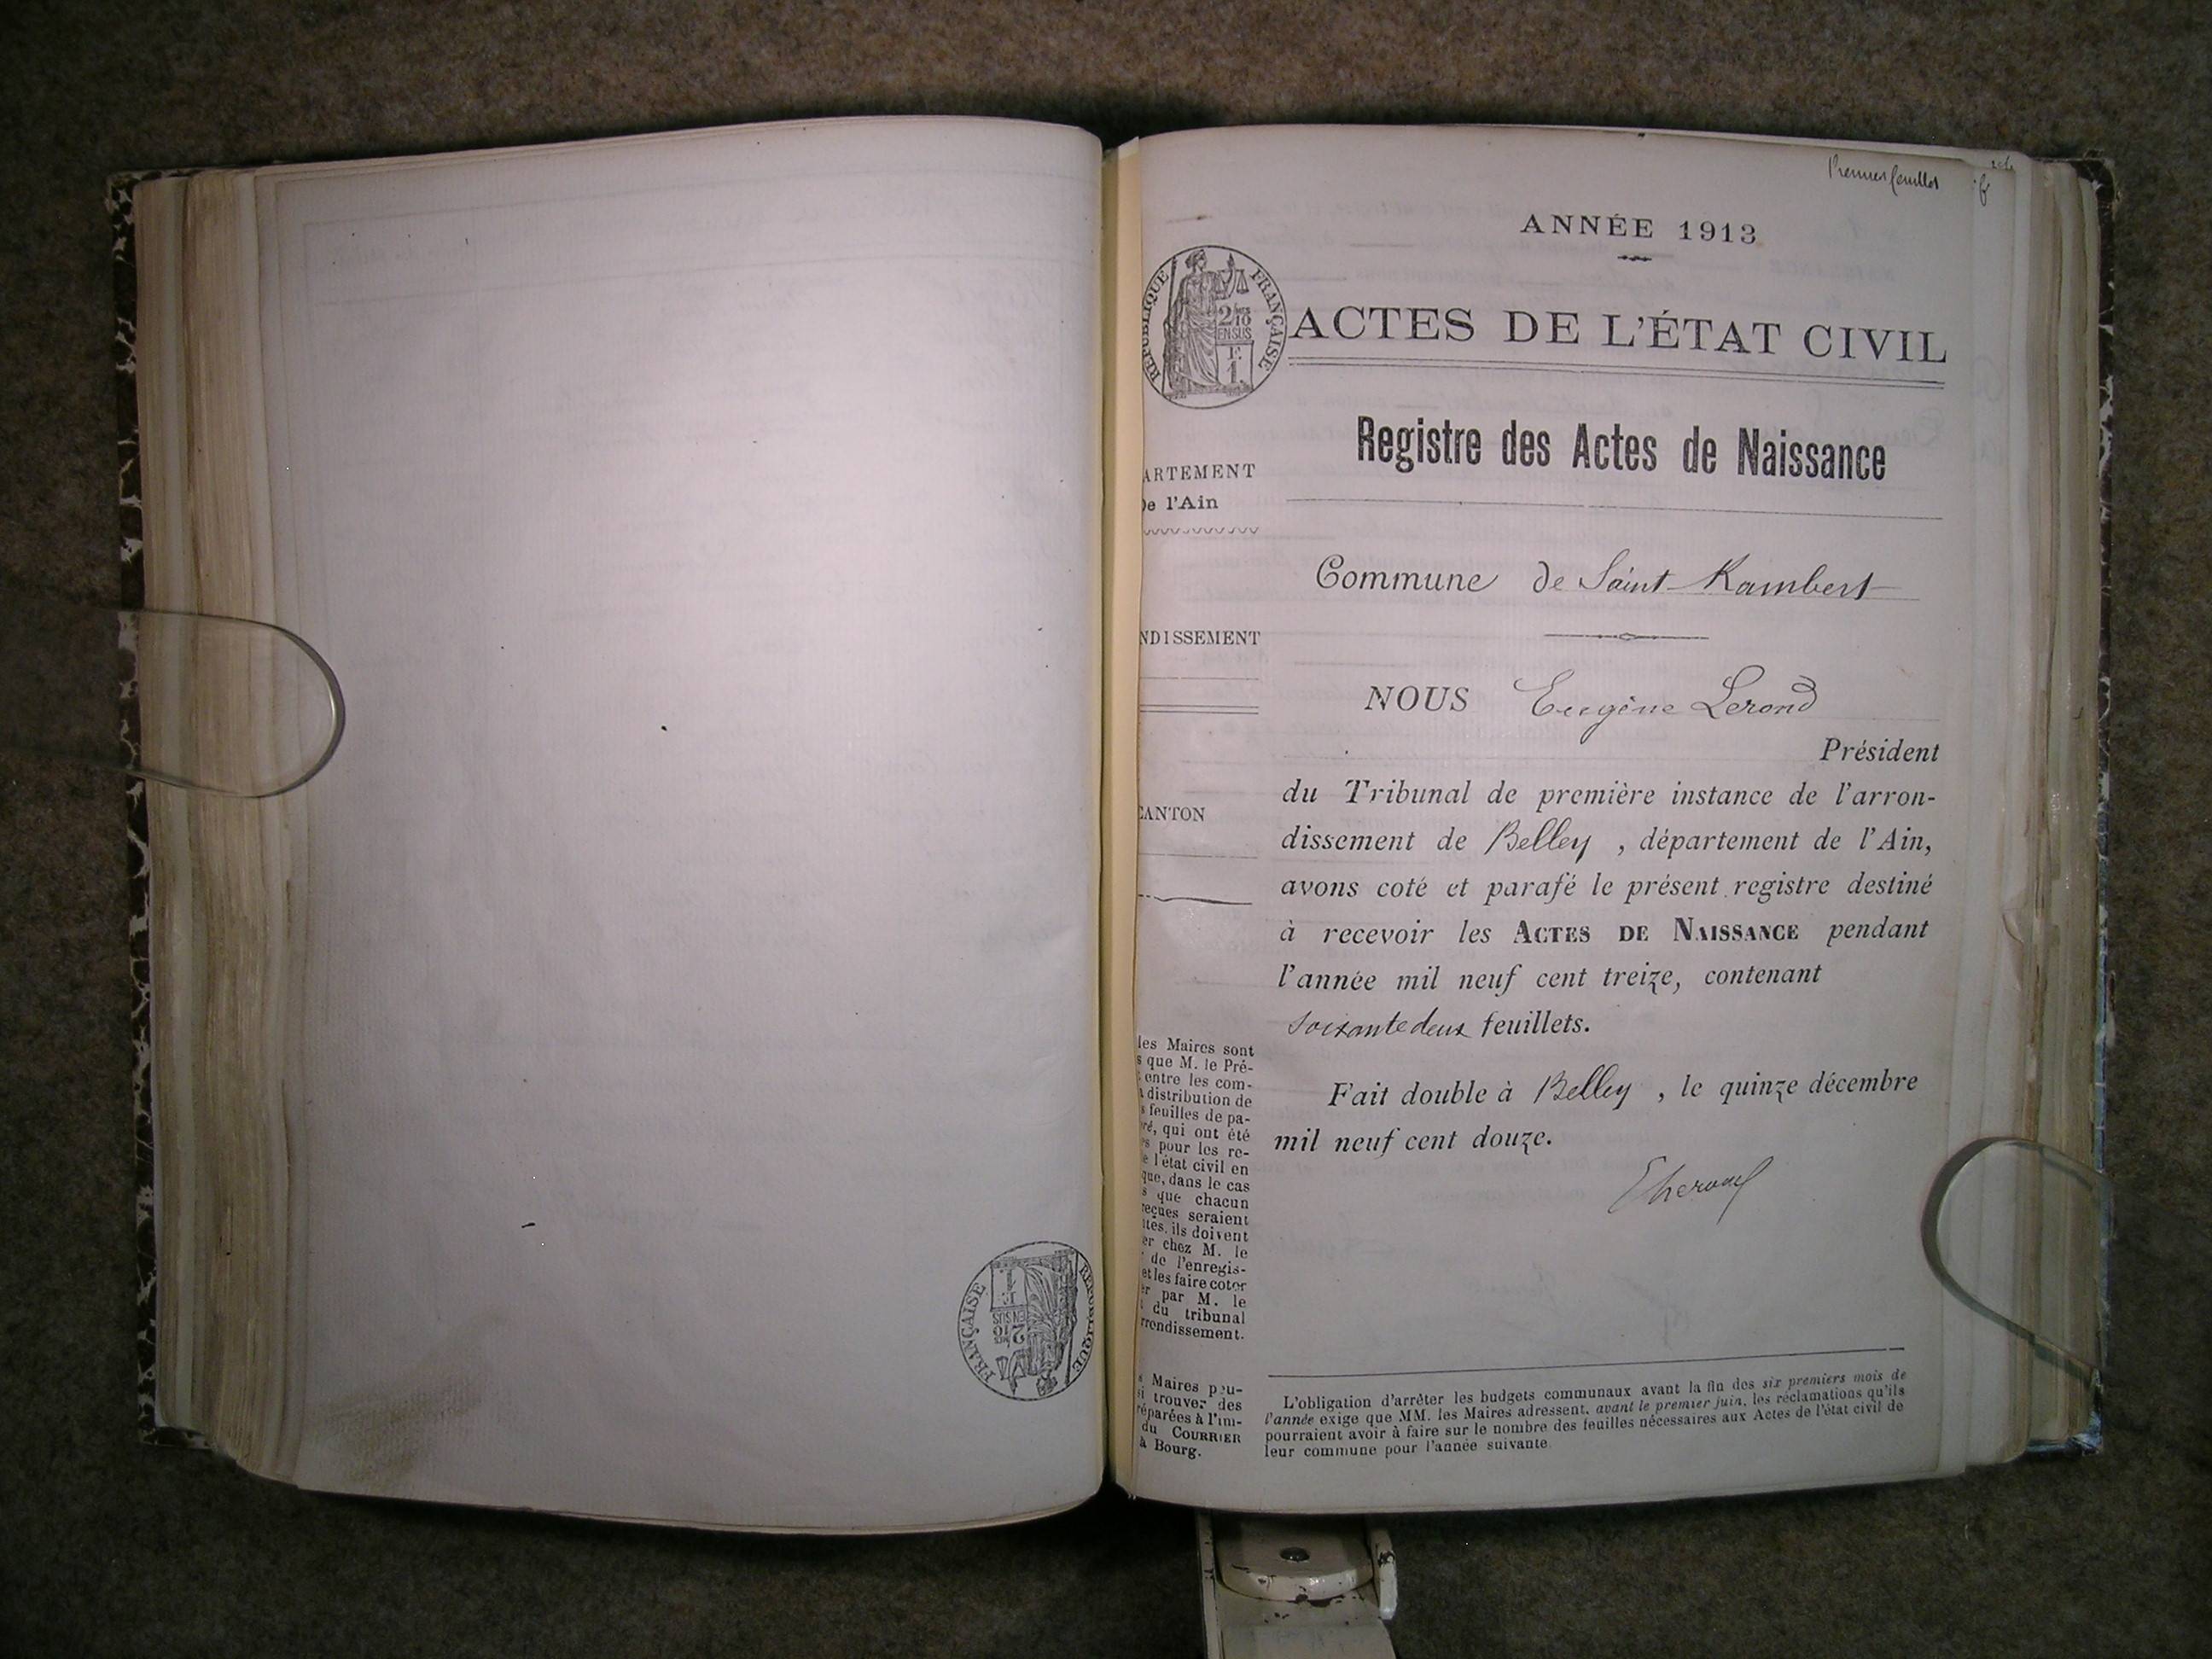 Premier feuillet
ANNÉE 1913
RÉPUBLIQUE FRANÇAISE
2/10
EN SUS
F.
1.
ACTES DE L'ÉTAT CIVIL
Registre des Actes de Naissance
ARTEMENT
De l'Ain
Commune de Saint-Rambert
NDISSEMENT
NOUS Eugène Lerond
Président
du Tribunal de première instance de l'arron-
dissement de Belley , département de l'Ain,
CANTON
avons coté et parafé le présent registre destiné
à recevoir les ACTES DE NAISSANCE pendant
l'année mil neuf cent treize, contenant
soixante deux feuillets.
Fait double à Belley , le quinze décembre
mil neuf cent douze.
les Maires sont
s que M. le Pré-
t entre les com-
a distribution de
s feuilles de pa-
ré, qui ont été
es pour les re-
e l'état civil en
que, dans le cas
s que chacun
reçues seraient
ités, ils doivent
er chez M. le
r de l'enregis-
et les faire coter
er par M. le
t du tribunal
rrondissement.
s Maires peu-
si trouver des
réparées à l'im-
du COURRIER
à Bourg.
L'obligation d'arrêter les budgets communaux avant la fin des six premiers mois de
l'année exige que MM. les Maires adressent, avant le premier juin, les réclamations qu'ils
pourraient avoir à faire sur le nombre des feuilles nécessaires aux Actes de l'état civil de
leur commune pour l'année suivante
RÉPUBLIQUE FRANÇAISE
2/10
EN SUS
F.
1.